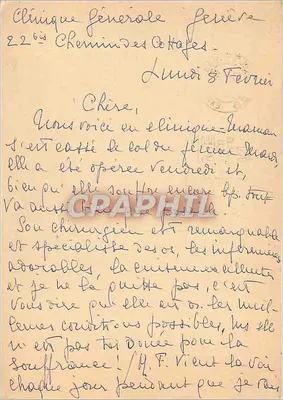 Clinique Générale Genève
22 bis Chemin des Cottages.
Lundi 8 Février
Chère,
Nous voici en clinique - Maman
s'est cassé le col du fémur
elle a été opérée vendredi et,
bien qu'elle souffre encore tout
va aussi
CRAPHIL
Son chirurgien est remarquable
et spécialiste des os, les infirmières
adorables, la cuisine excellente
et je ne la quitte pas, c'est
vous dire qu'elle est ds. les meil-
leures conditions possibles, mais elle
n'est pas douée pour la
souffrance! M. F. vient la voir
chaque jour pendant que je vais